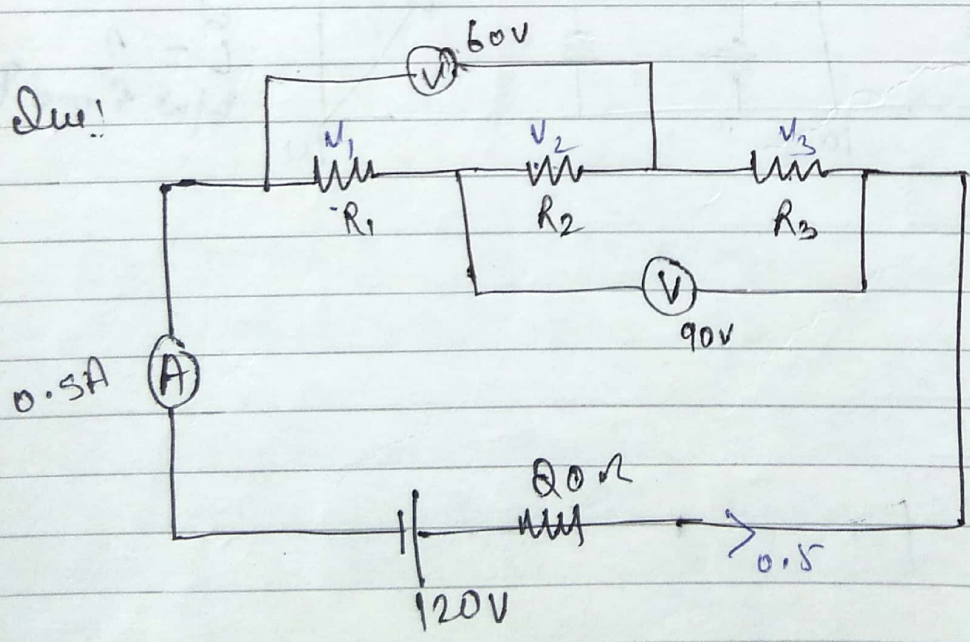 Que:
V 60V
V1 V2 V3
R1 R2 R3
V
90V
0.5A A
20Ω
0.5
120V